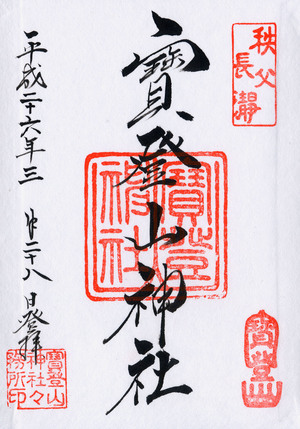 秩父
長瀞
寳登山神社
寳登山
神社
寳登山
平成二十六年三月二十八日登拝
寳登山
神社々
務所印